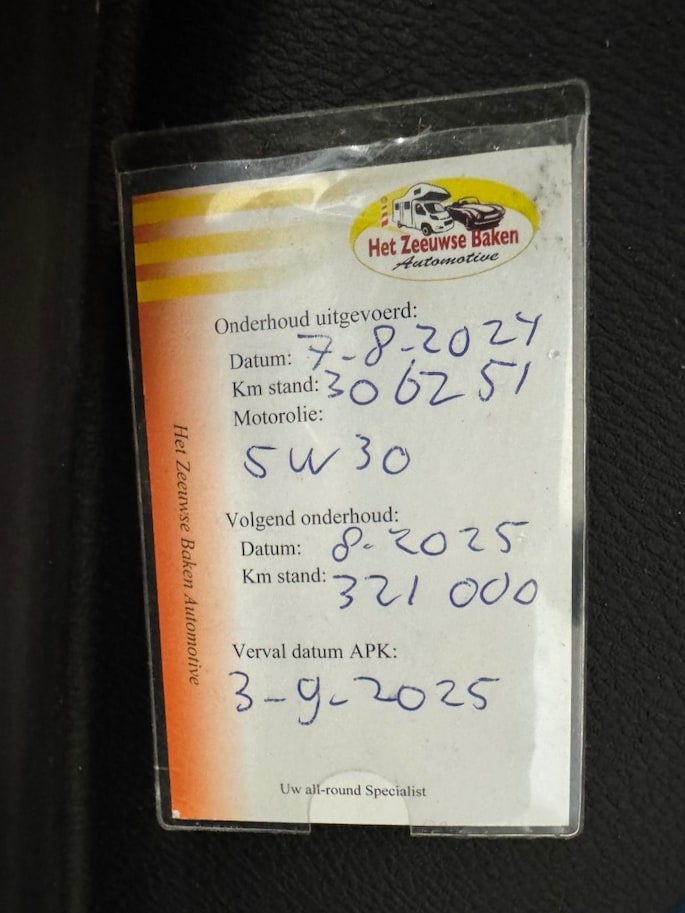 Het Zeeuwse Baken
Automotive
Onderhoud uitgevoerd:
Datum: 7-8-2024
Km stand: 306251
Motorolie:
5W30
Volgend onderhoud:
Datum: 8-2025
Km stand: 321 000
Verval datum APK:
3-9-2025
Uw all-round Specialist
Het Zeeuwse Baken Automotive